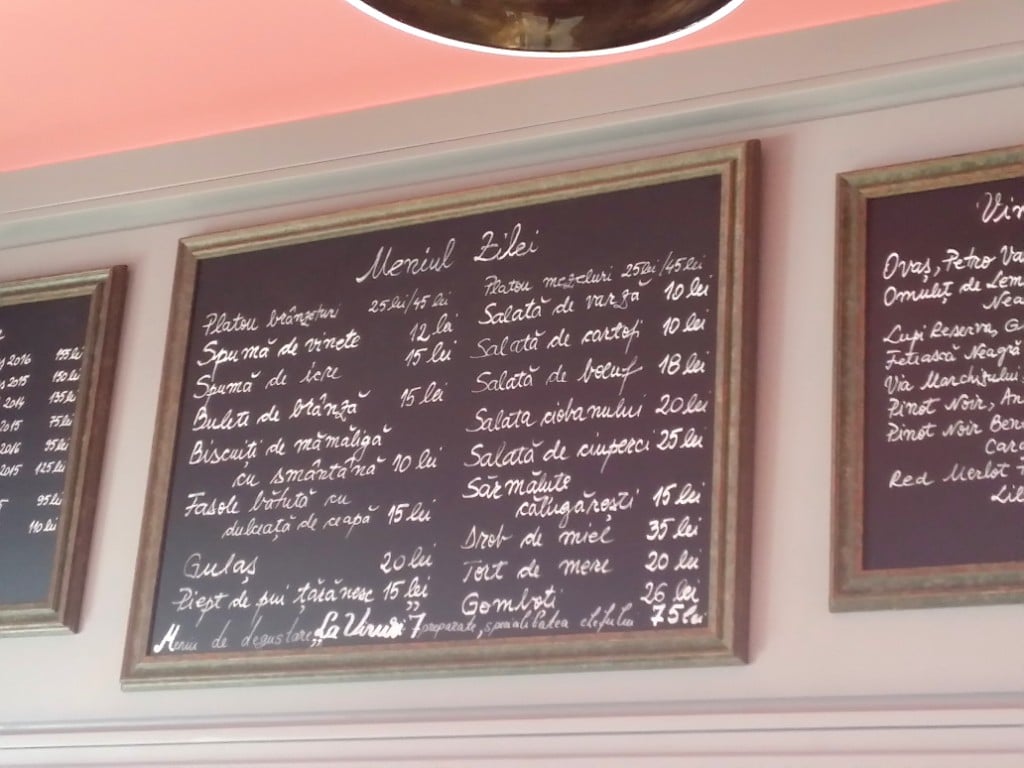 s 2016 155 lei
s 2015 150 lei
2014 135 lei
2015 75 lei
2016 95 lei
2015 125 lei
95 lei
110 lei
Meniul Zilei
Platou brânzeturi 25 lei/45 lei
Spumă de vinete 12 lei
Spumă de icre 15 lei
Bulete de brânză 15 lei
Biscuiți de mămăligă
cu smântână 10 lei
Fasole bătută cu
dulceață de ceapă 15 lei
Gulaș 20 lei
Piept de pui țărănesc 15 lei
Platou mezeluri 25 lei/45 lei
Salată de varză 10 lei
Salată de cartofi 10 lei
Salată de boeuf 18 lei
Salata ciobanului 20 lei
Salată de ciuperci 25 lei
Sărmăluțe
călugărești 15 lei
Drob de miel 35 lei
Tort de mere 20 lei
Gomboți 26 lei
Meniu de degustare „La Vinuri” 7 preparate, specialitatea chefului 75 lei
Vin
Ovaș, Petro Va
Omuleț de Lem
Nea
Lupi Reserva, G
Fetească Neagră
Via Marchizului
Pinot Noir, An
Pinot Noir Ben
Car
Red Merlot
Lil